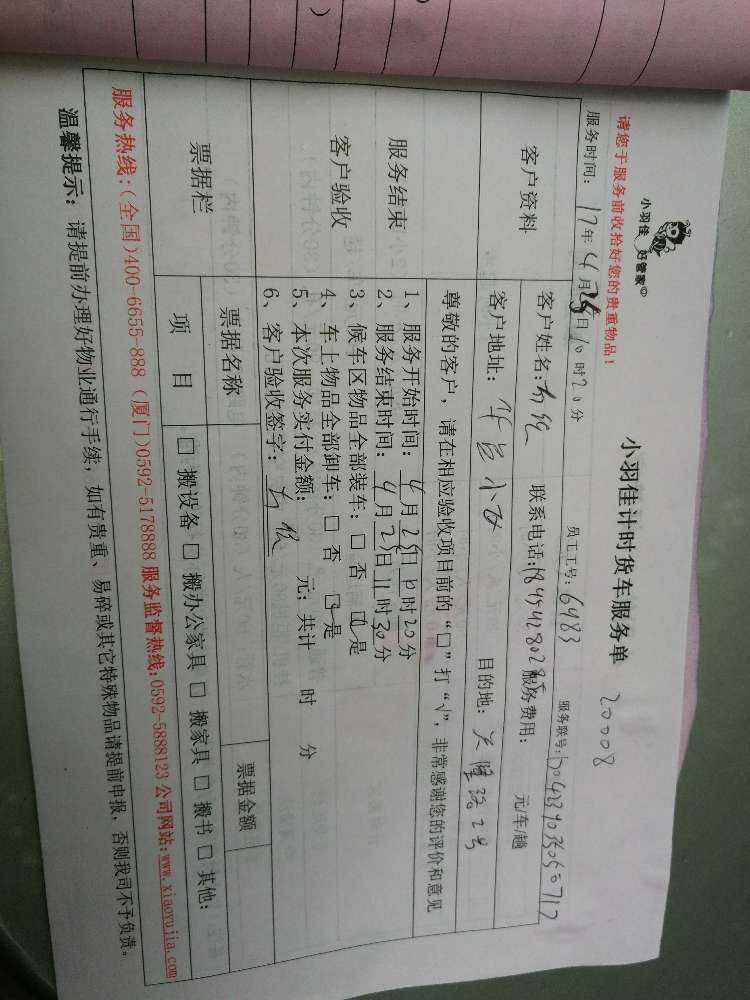 小羽佳 好管家©
小羽佳计时货车服务单 20008
请您于服务前收拾好您的贵重物品！
服务时间：17年4月25日10时20分 员工工号：6983 服务联号：
客户资料
客户姓名： 联系电话： 服务费用： 元/车/趟
客户地址： 目的地： 2号
服务结束
客户验收
尊敬的客户，请在相应验收项目前的“□”打“√”，非常感谢您的评价和意见
1、服务开始时间：4月25日10时20分
2、服务结束时间：4月25日11时30分
3、候车区物品全部装车：□ 否 ☑ 是
4、车上物品全部卸车：□ 否 ☑ 是
5、本次服务实付金额： 元；共计 时 分
6、客户验收签字：
票据栏
票据名称 票据金额
项 目 □ 搬设备 □ 搬办公家具 □ 搬家具 □ 搬书 □ 其他：
服务热线：(全国)400-6655-888 (厦门)0592-5178888 服务监督热线：0592-5888123 公司网站：www.xiaoyujia.com
温馨提示：请提前办理好物业通行手续，如有贵重、易碎或其它特殊物品请提前申报，否则我司不予负责。